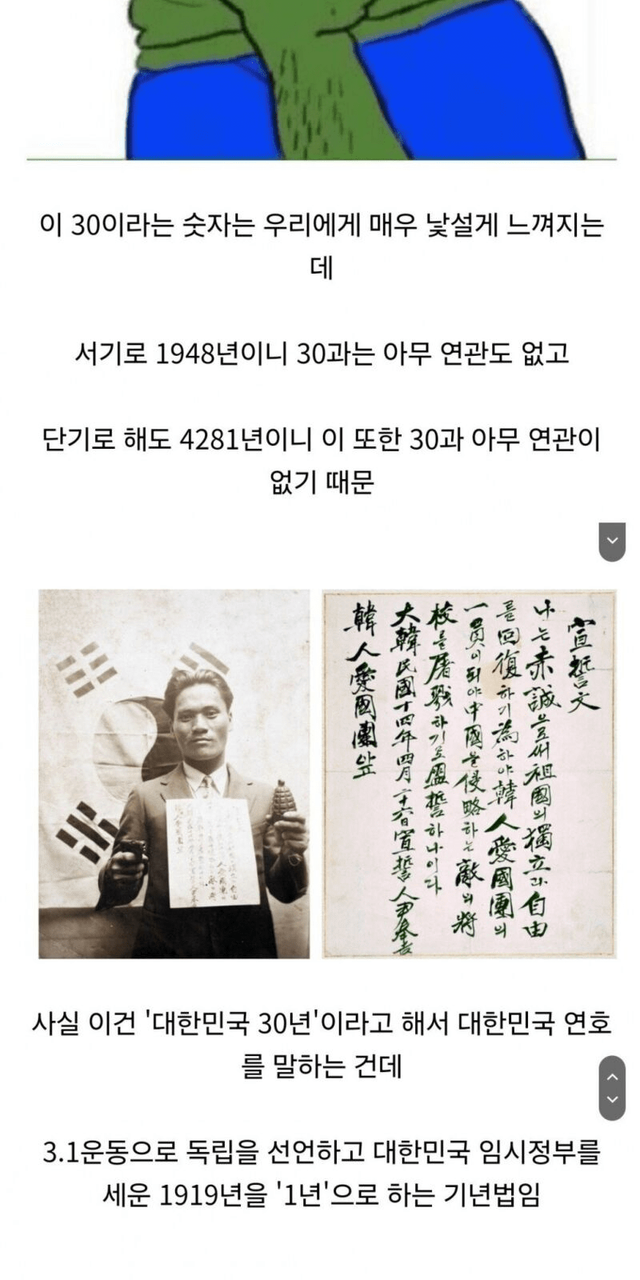 이 30이라는 숫자는 우리에게 매우 낯설게 느껴지는
데
서기로 1948년이니 30과는 아무 연관도 없고
단기로 해도 4281년이니 이 또한 30과 아무 연관이
없기 때문
宣誓文
나는 赤誠으로써 祖國의 獨立과 自由
를 回復하기 爲하야 韓人愛國團의
一員이 되야 中國을 侵略하는 敵의 將
校를 屠戮하기로 盟誓하나이다
大韓民國十四年四月二十六日 宣誓人 尹奉吉
韓人愛國團앞
사실 이건 '대한민국 30년'이라고 해서 대한민국 연호
를 말하는 건데
3.1운동으로 독립을 선언하고 대한민국 임시정부를
세운 1919년을 '1년'으로 하는 기년법임